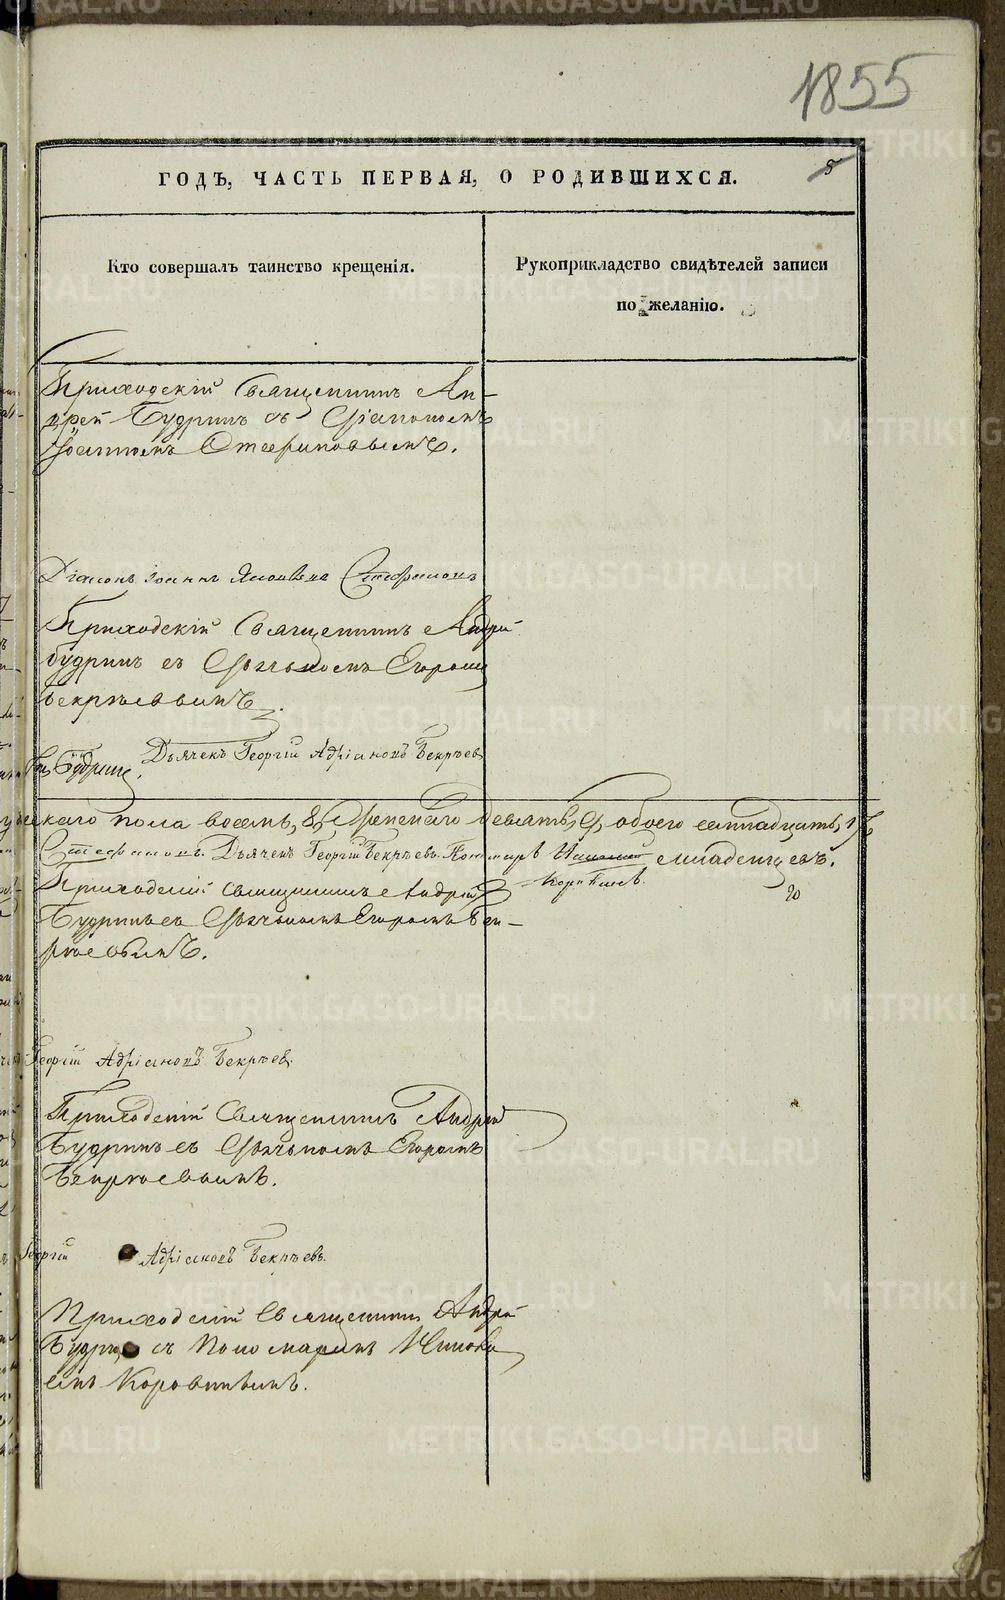 1855
ГОДЪ, ЧАСТЬ ПЕРВАЯ, О РОДИВШИХСЯ.
5
Кто совершалъ таинство крещенія.
Рукоприкладство свидѣтелей записи
по желанію.
Приходскій Священникъ Ан-
дрей Будринъ съ Діакономъ
Іоанномъ Стефановымъ.
Діаконъ Іоаннъ Яковлевъ Стефановъ
Приходскій Священникъ Андрей
Будринъ съ Дьячькомъ Егоромъ
Бекряевымъ.
Будринъ. Дьячекъ Георгій Адріановъ Бекряев
пола восемь, 8, Женскаго девять, 9, обоего семнадцать, 17
Стефановъ. Дьячекъ Георгій Бекряевъ. Пономарь младенцевъ.
20
Приходскій Священникъ Андрей
Будринъ съ Дьячькомъ Егоромъ Бек-
ряевымъ.
Георгій Адріановъ Бекряев
Приходскій Священникъ Андрей
Будринъ съ Дьячькомъ Егоромъ
Бекряевымъ.
Георгій Адріановъ Бекряевъ.
Приходскій Священникъ Андрей
Будри съ Пономаремъ
емъ
METRIKI.GASO-URAL.RU